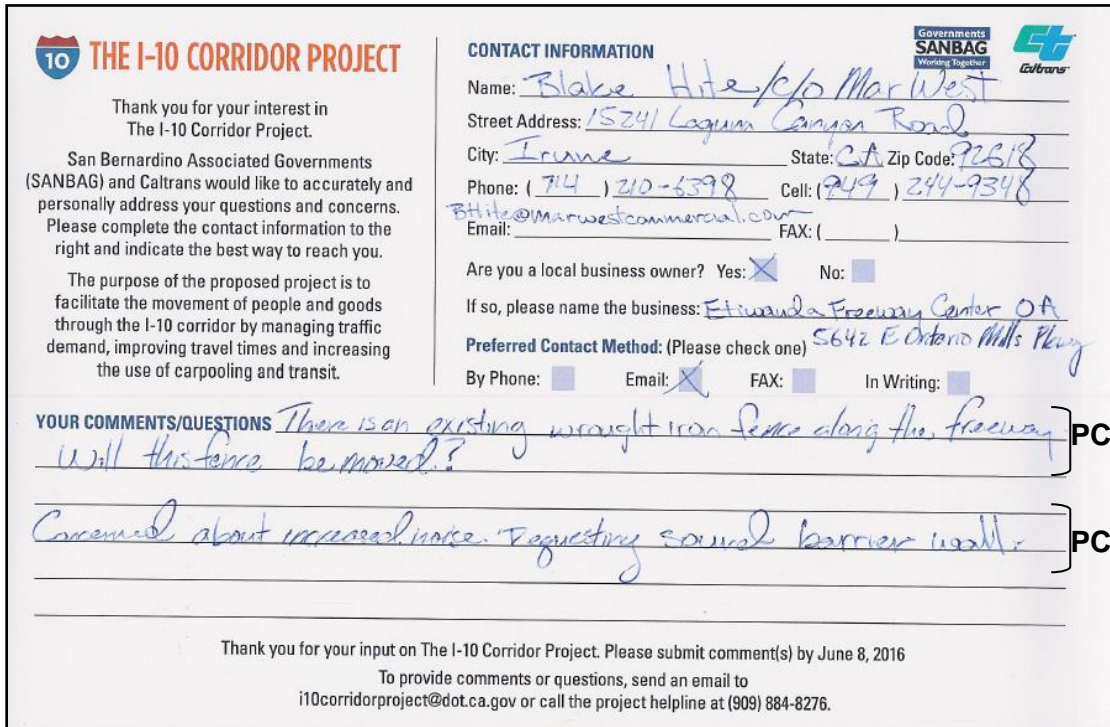 10 THE I-10 CORRIDOR PROJECT
Thank you for your interest in
The I-10 Corridor Project.
San Bernardino Associated Governments
(SANBAG) and Caltrans would like to accurately and
personally address your questions and concerns.
Please complete the contact information to the
right and indicate the best way to reach you.
The purpose of the proposed project is to
facilitate the movement of people and goods
through the I-10 corridor by managing traffic
demand, improving travel times and increasing
the use of carpooling and transit.
CONTACT INFORMATION
Governments
SANBAG
Working Together
Caltrans
Name: Blake Hite/c/o MarWest
Street Address: 15241 Laguna Canyon Road
City: Irvine State: CA Zip Code: 92618
Phone: (714) 210-6398 Cell: (949) 244-9348
BHite@marwestcommercial.com
Email: FAX: ( )
Are you a local business owner? Yes: X No:
If so, please name the business: Etiwanda Freeway Center OA
5642 E Ontario Mills Pkwy
Preferred Contact Method: (Please check one)
By Phone: Email: X FAX: In Writing:
YOUR COMMENTS/QUESTIONS There is an existing wrought iron fence along the freeway
Will this fence be moved?
PC
Concerned about increased noise. Requesting sound barrier wall.
PC
Thank you for your input on The I-10 Corridor Project. Please submit comment(s) by June 8, 2016
To provide comments or questions, send an email to
i10corridorproject@dot.ca.gov or call the project helpline at (909) 884-8276.